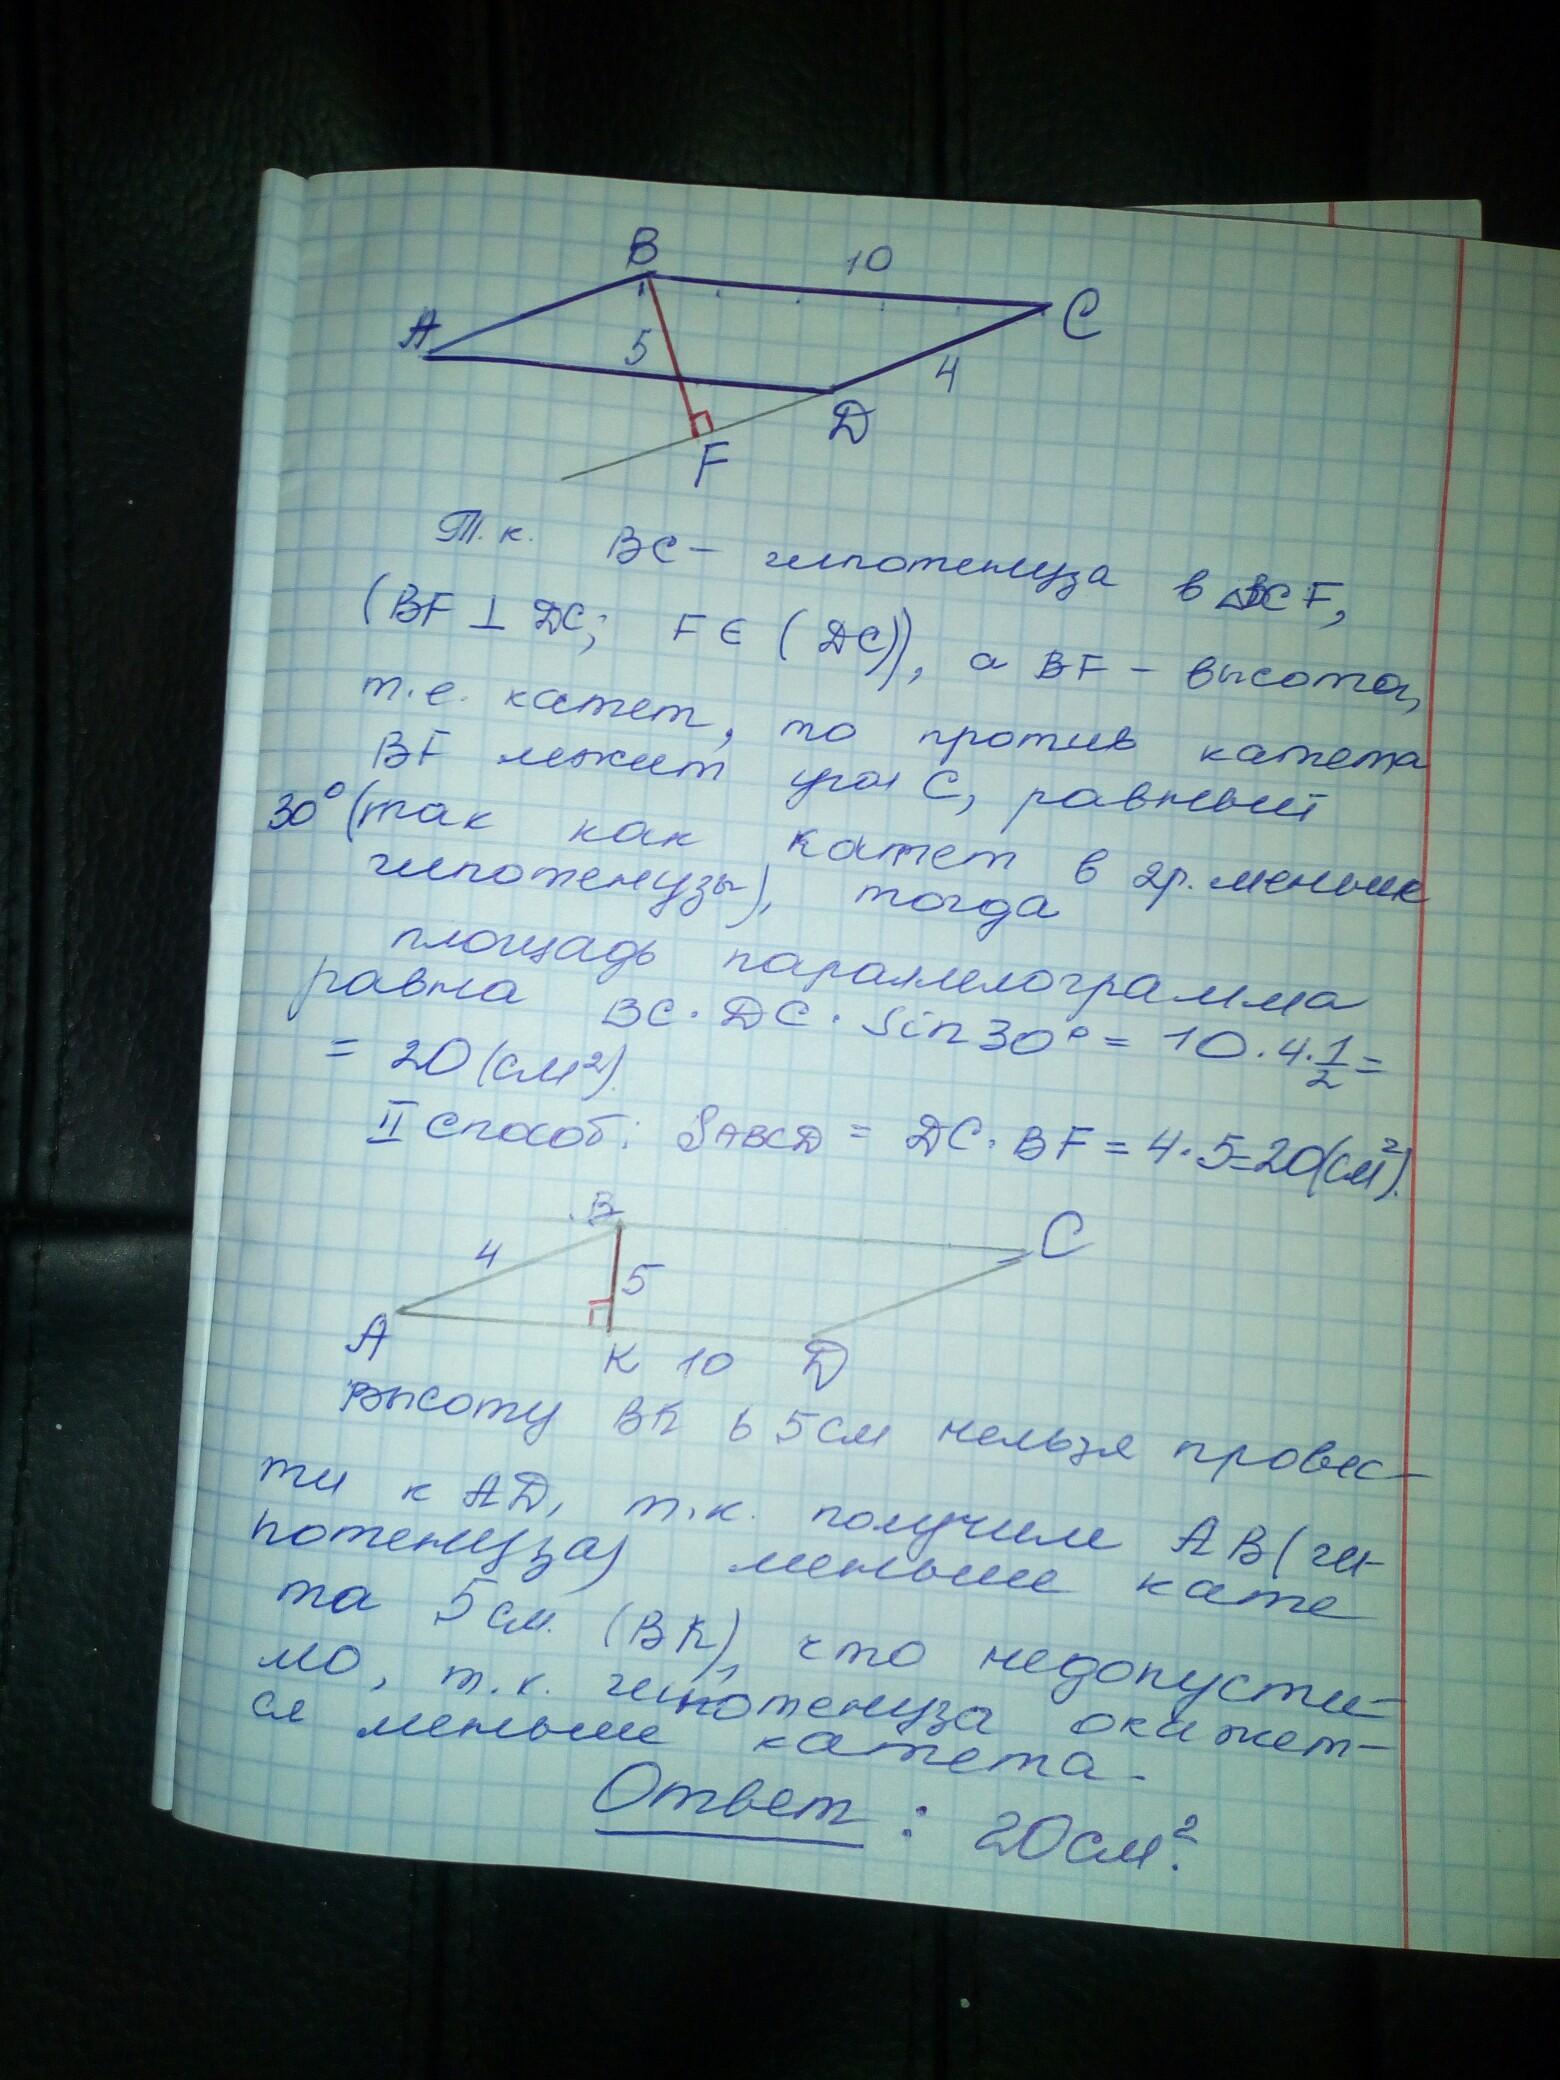 B
10
C
A
5
4
D
F
Т.к. BC – гипотенуза в △BCF,
(BF ⊥ DC; F ∈ (DC)), а BF – высота,
т.е. катет, то против катета
BF лежит угол C, равный
30° (так как катет в 2р. меньше
гипотенузы), тогда
площадь параллелограмма
равна BC · DC · Sin 30° = 10 · 4 · 1/2 =
= 20 (см²).
II способ: SABCD = DC · BF = 4 · 5 = 20 (см²).
B
C
4
5
A
K 10 D
Высоту BK в 5 см нельзя провес-
ти к AD, т.к. получим AB (ги-
потенуза) меньше кате
та 5 см. (BK), что недопусти-
мо, т.к. гипотенуза окажет-
ся меньше катета.
Ответ: 20 см².